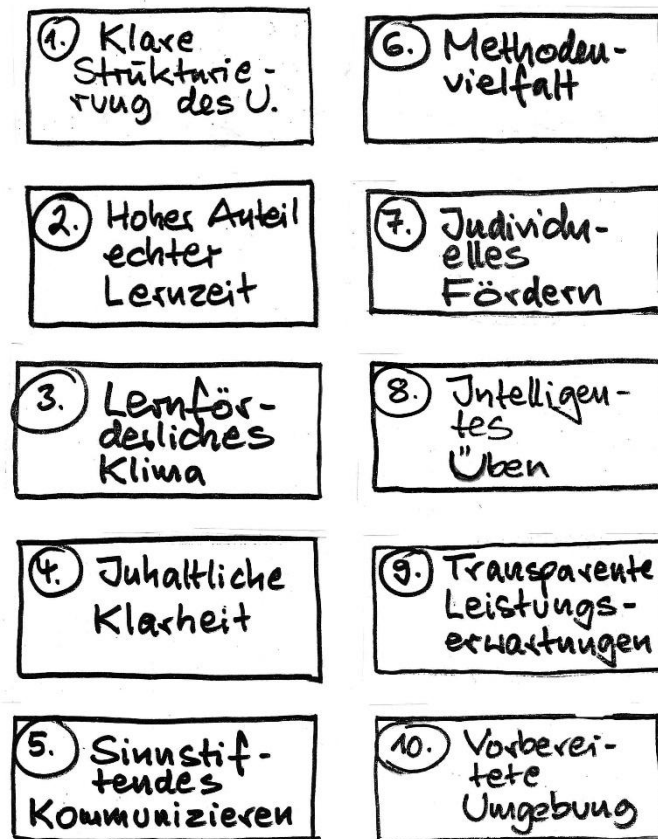 1. Klare
Strukturie-
rung des U.
2. Hoher Anteil
echter
Lernzeit
3. Lernför-
derliches
Klima
4. Inhaltliche
Klarheit
5. Sinnstif-
tendes
Kommunizieren
6. Methoden-
vielfalt
7. Individu-
elles
Fördern
8. Intelligen-
tes
Üben
9. Transparente
Leistungs-
erwartungen
10. Vorberei-
tete
Umgebung